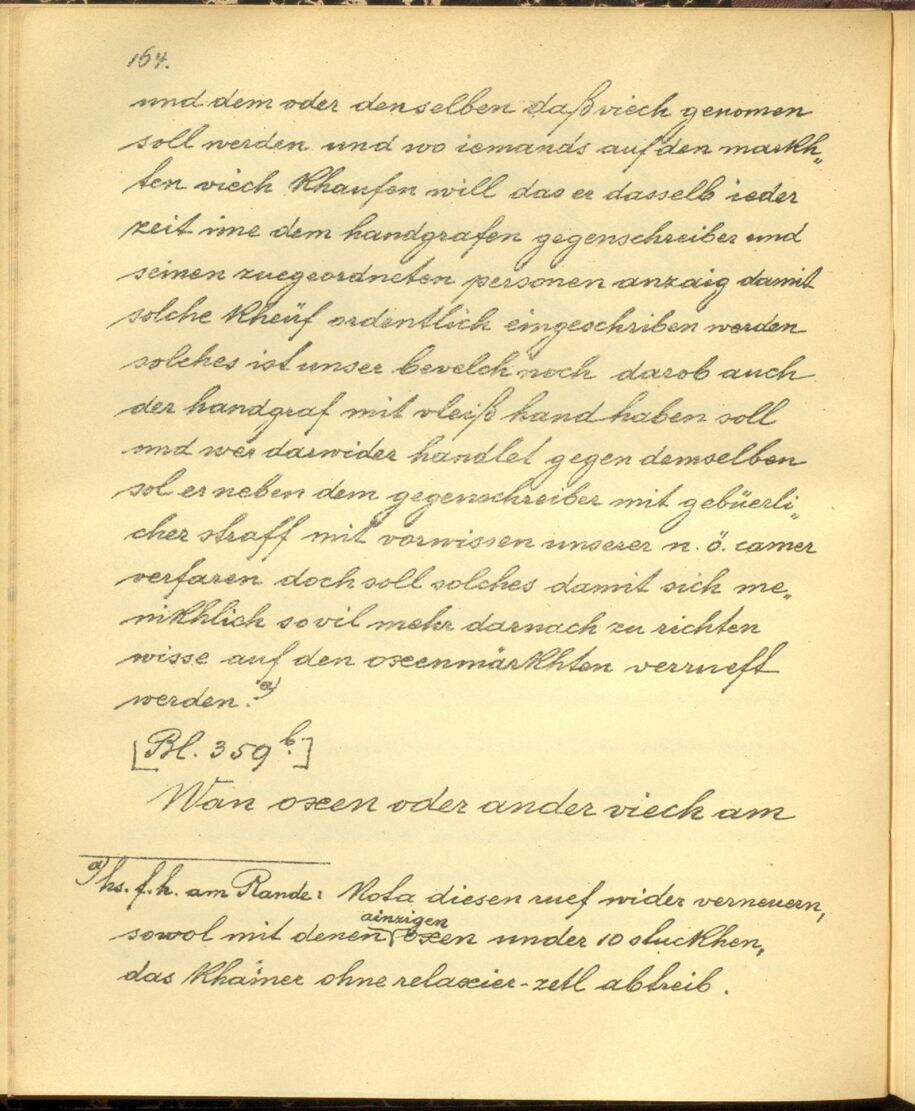 164.
und dem oder denselben daß viech genomen
soll werden und wo iemands auf den markh„
ten viech khaufen will das er dasselb ieder
zeit ime dem handgrafen gegenschreiber und
seinen zuegeordneten personen anzaig damit
solche kheüf ordentlich eingeschriben werden
solches ist unser bevelch noch darob auch
der handgraf mit vleiß hand haben soll
und wer darwider handlet gegen demselben
sol er neben dem gegenschreiber mit gebüerli„
cher straff mit vorwissen unserer n. ö. camer
verfaren doch soll solches damit sich me„
nikhlich sovil mehr darnach zu richten
wisse auf den oxenmärkhten verrueft
werden. a)
[Bl. 359 b.]
Wan oxen oder ander viech am
a) hs. f. h. am Rande: Nota diesen ruef wider verneuern,
sowol mit denen ainzigen oxen under 10 stuckhen,
das khainer ohne relaxier-zetl abtreib.